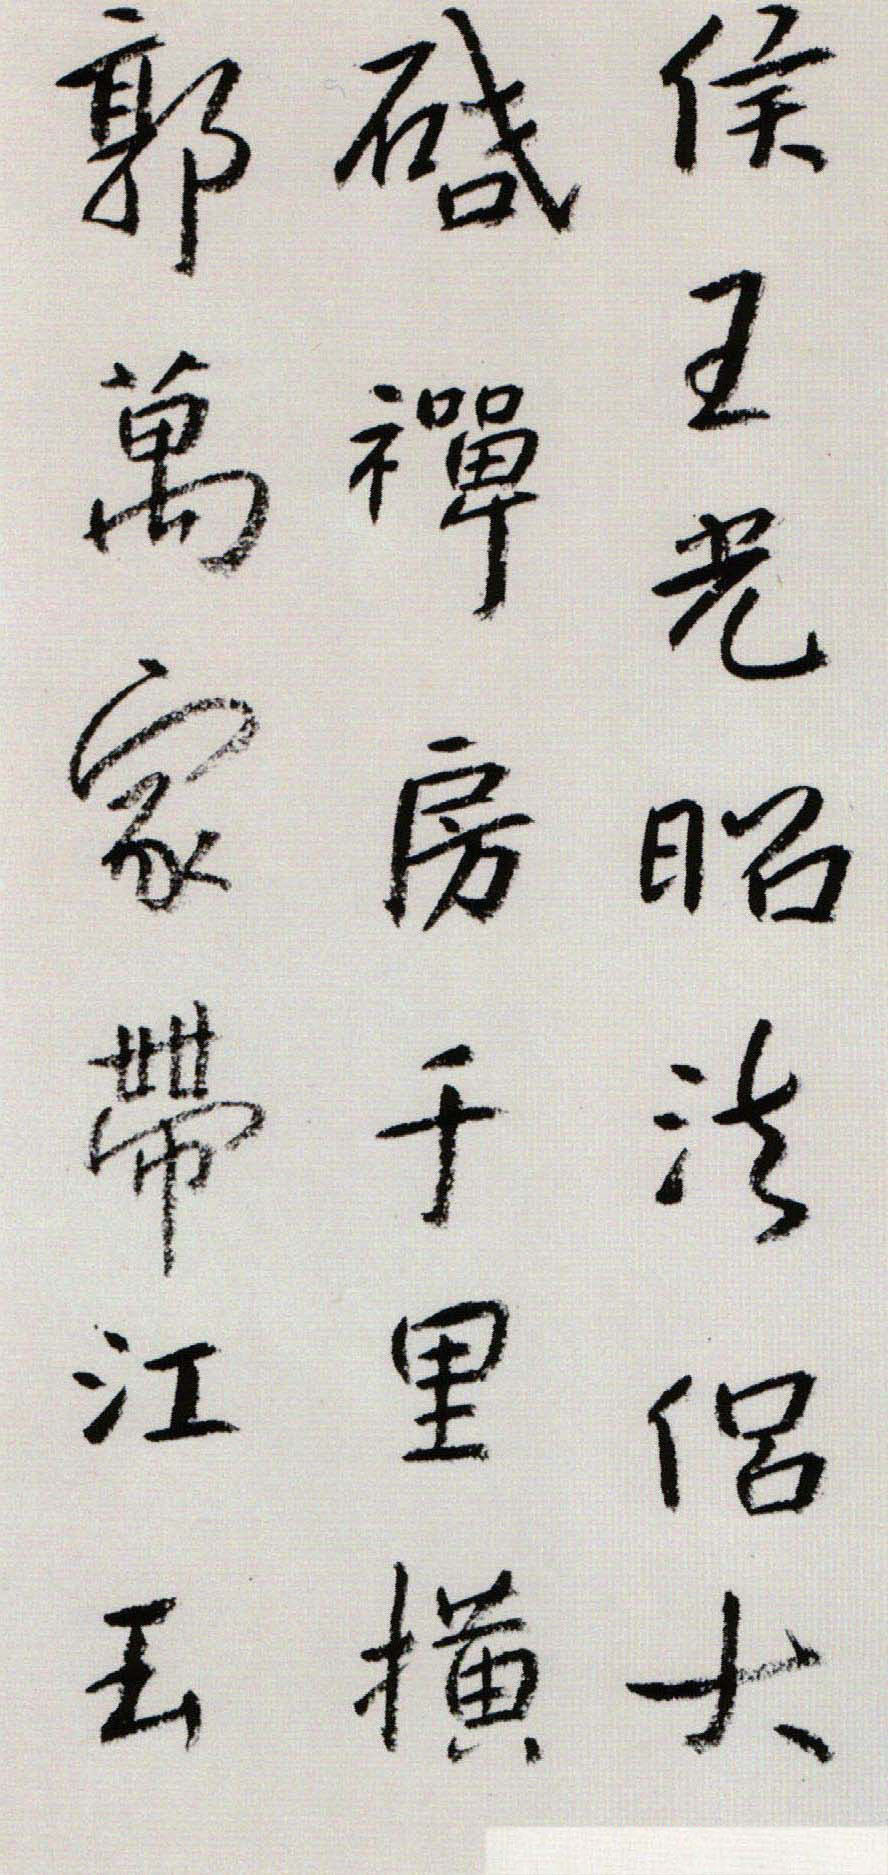 侯王光昭法侣大
啟禪房千里橫
郭萬家帶江玉